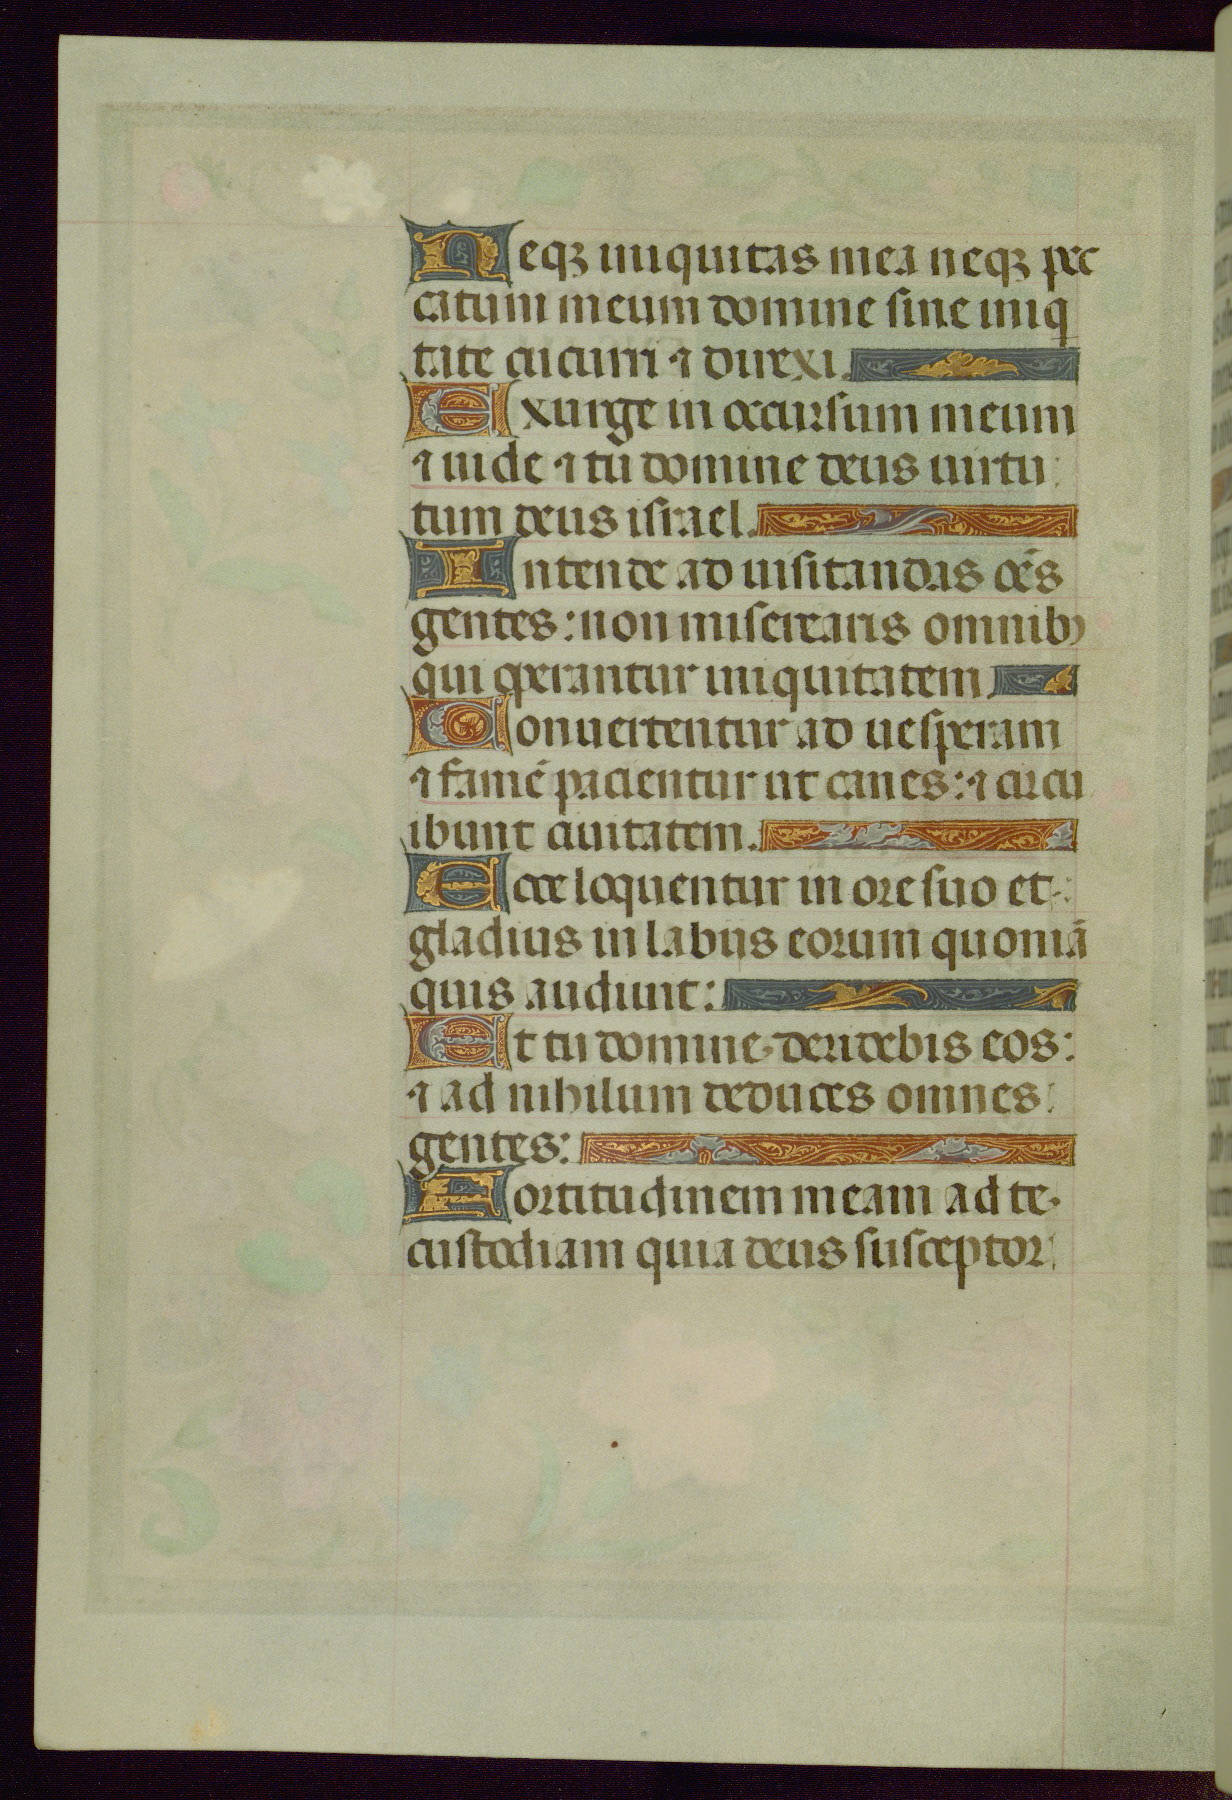 Neqꝫ iniquitas mea neqꝫ pec
catum meum domine sine iniq
tate cucurri ⁊ direxi.
Exurge in occursum meum
⁊ uide ⁊ tu domine deus uirtu
tum deus israel.
Intende ad uisitandas oēs
gentes: non miserearis omnibꝰ
qui operantur iniquitatem.
Conuertentur ad uesperam
⁊ famē pacientur ut canes: ⁊ circu
ibunt ciuitatem.
Ecce loquentur in ore suo et
gladius in labiis eorum quoniā
quis audiunt:
Et tu domine deridebis eos:
⁊ ad nihilum deduces omnes
gentes:
Fortitudinem meam ad te
custodiam quia deus susceptor